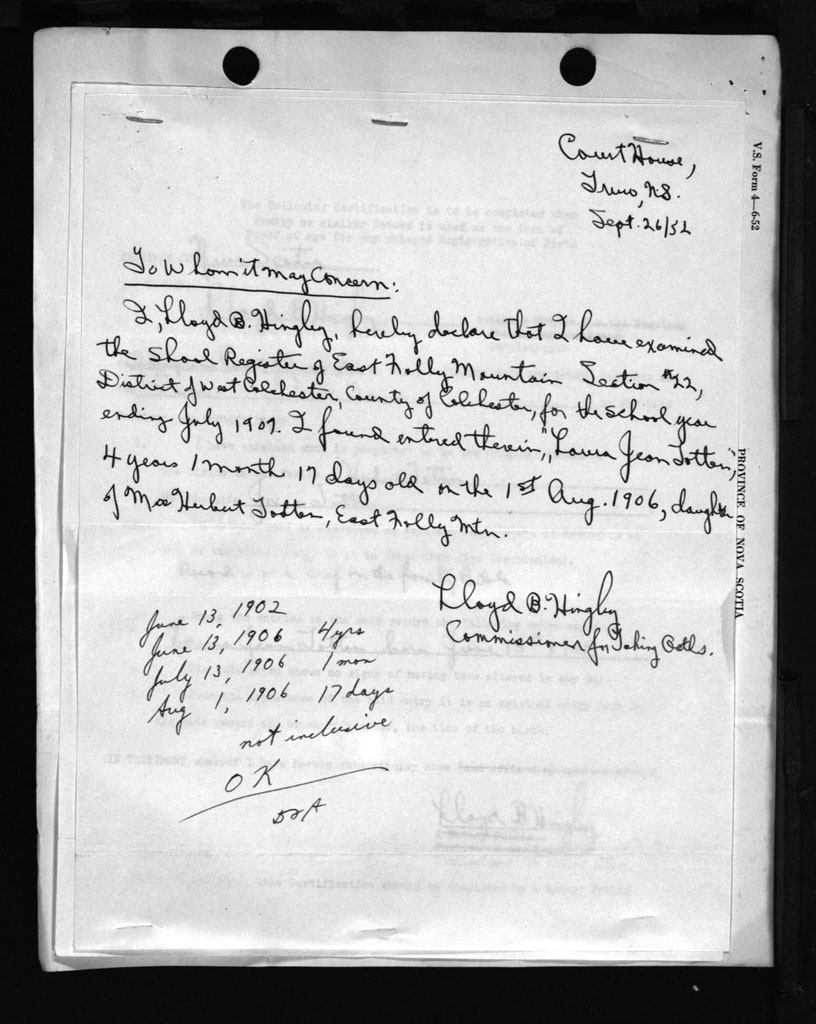 Court House,
Truro, N.S.
Sept. 26/52
V.S. Form 4—6-52
To Whom it May Concern:
I, Lloyd B. Hingley, hereby declare that I have examined
the Shool Register of East Folly Mountain Section #22,
District of West Colchester, County of Colchester, for the school year
ending July 1907. I found entered therein, "Laura Jean Totten",
4 years 1 month 17 days old on the 1st Aug. 1906, daughter
of Mrs Herbert Totten, East Folly Mtn.
PROVINCE OF NOVA SCOTIA
Lloyd B. Hingley
Commissioner for Taking Oaths.
June 13, 1902
June 13, 1906 4 yrs
July 13, 1906 1 mon
Aug 1, 1906 17 days
not inclusive
OK
The following Certification is to be completed when